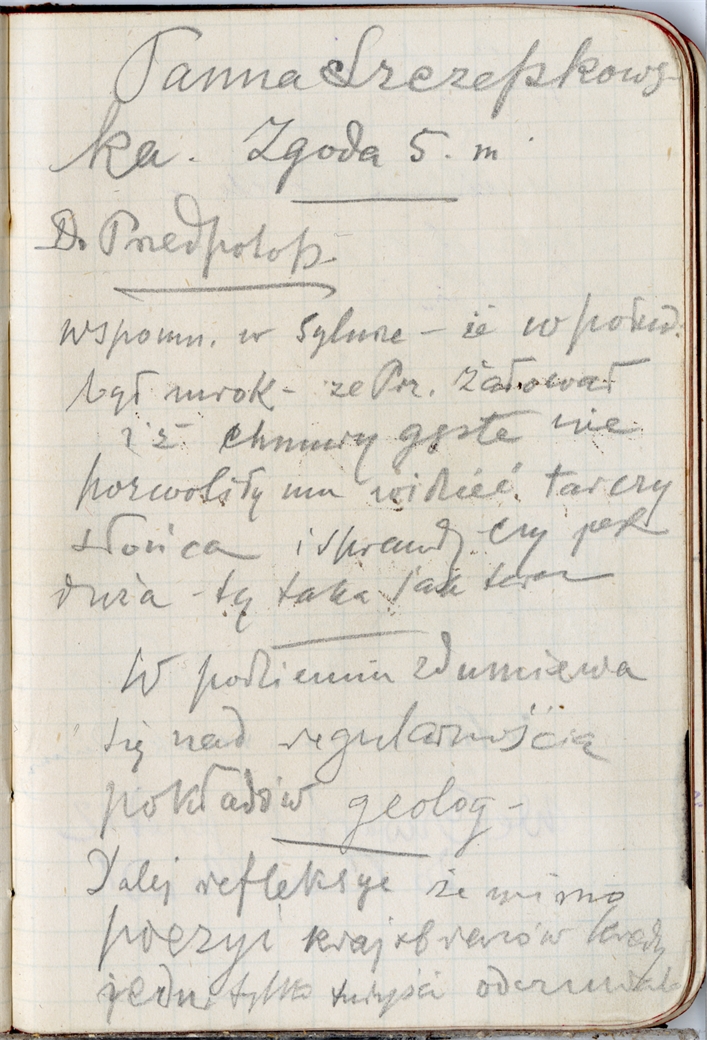 Panna Szczepkows-
ka. Zgoda 5. m
Do Przedpotop.
wspomn. w Sylurze – iż w połud.
był mrok – że Prz. żałował
iż chmury gęste nie
pozwoliły mu widzieć tarczy
słońca i sprawdz. czy jest
duża – tę taka jak teraz
W podziemiu zdumiewa
się nad regularnością
pokładów geolog –
Dalej refleksye że mimo
poezyi krajobrazów kredy
jedni tylko turyści